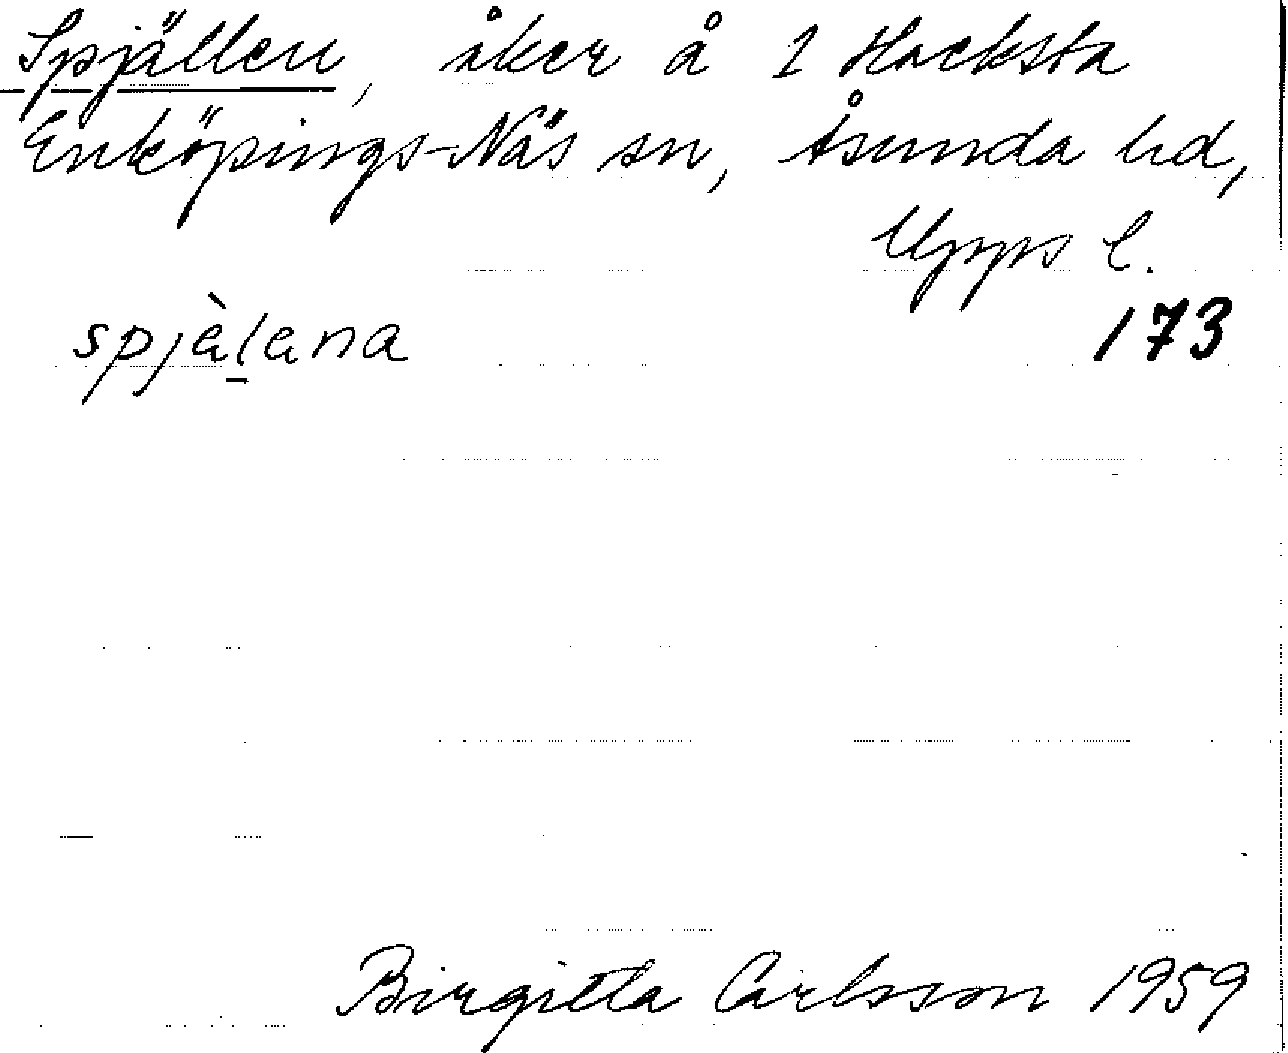 Spjällen, åker å 1 Hacksta
Enköpings-Näs sn, Åsunda hd,
Upps l.
spjàlana
173
Birgitta Carlsson 1959